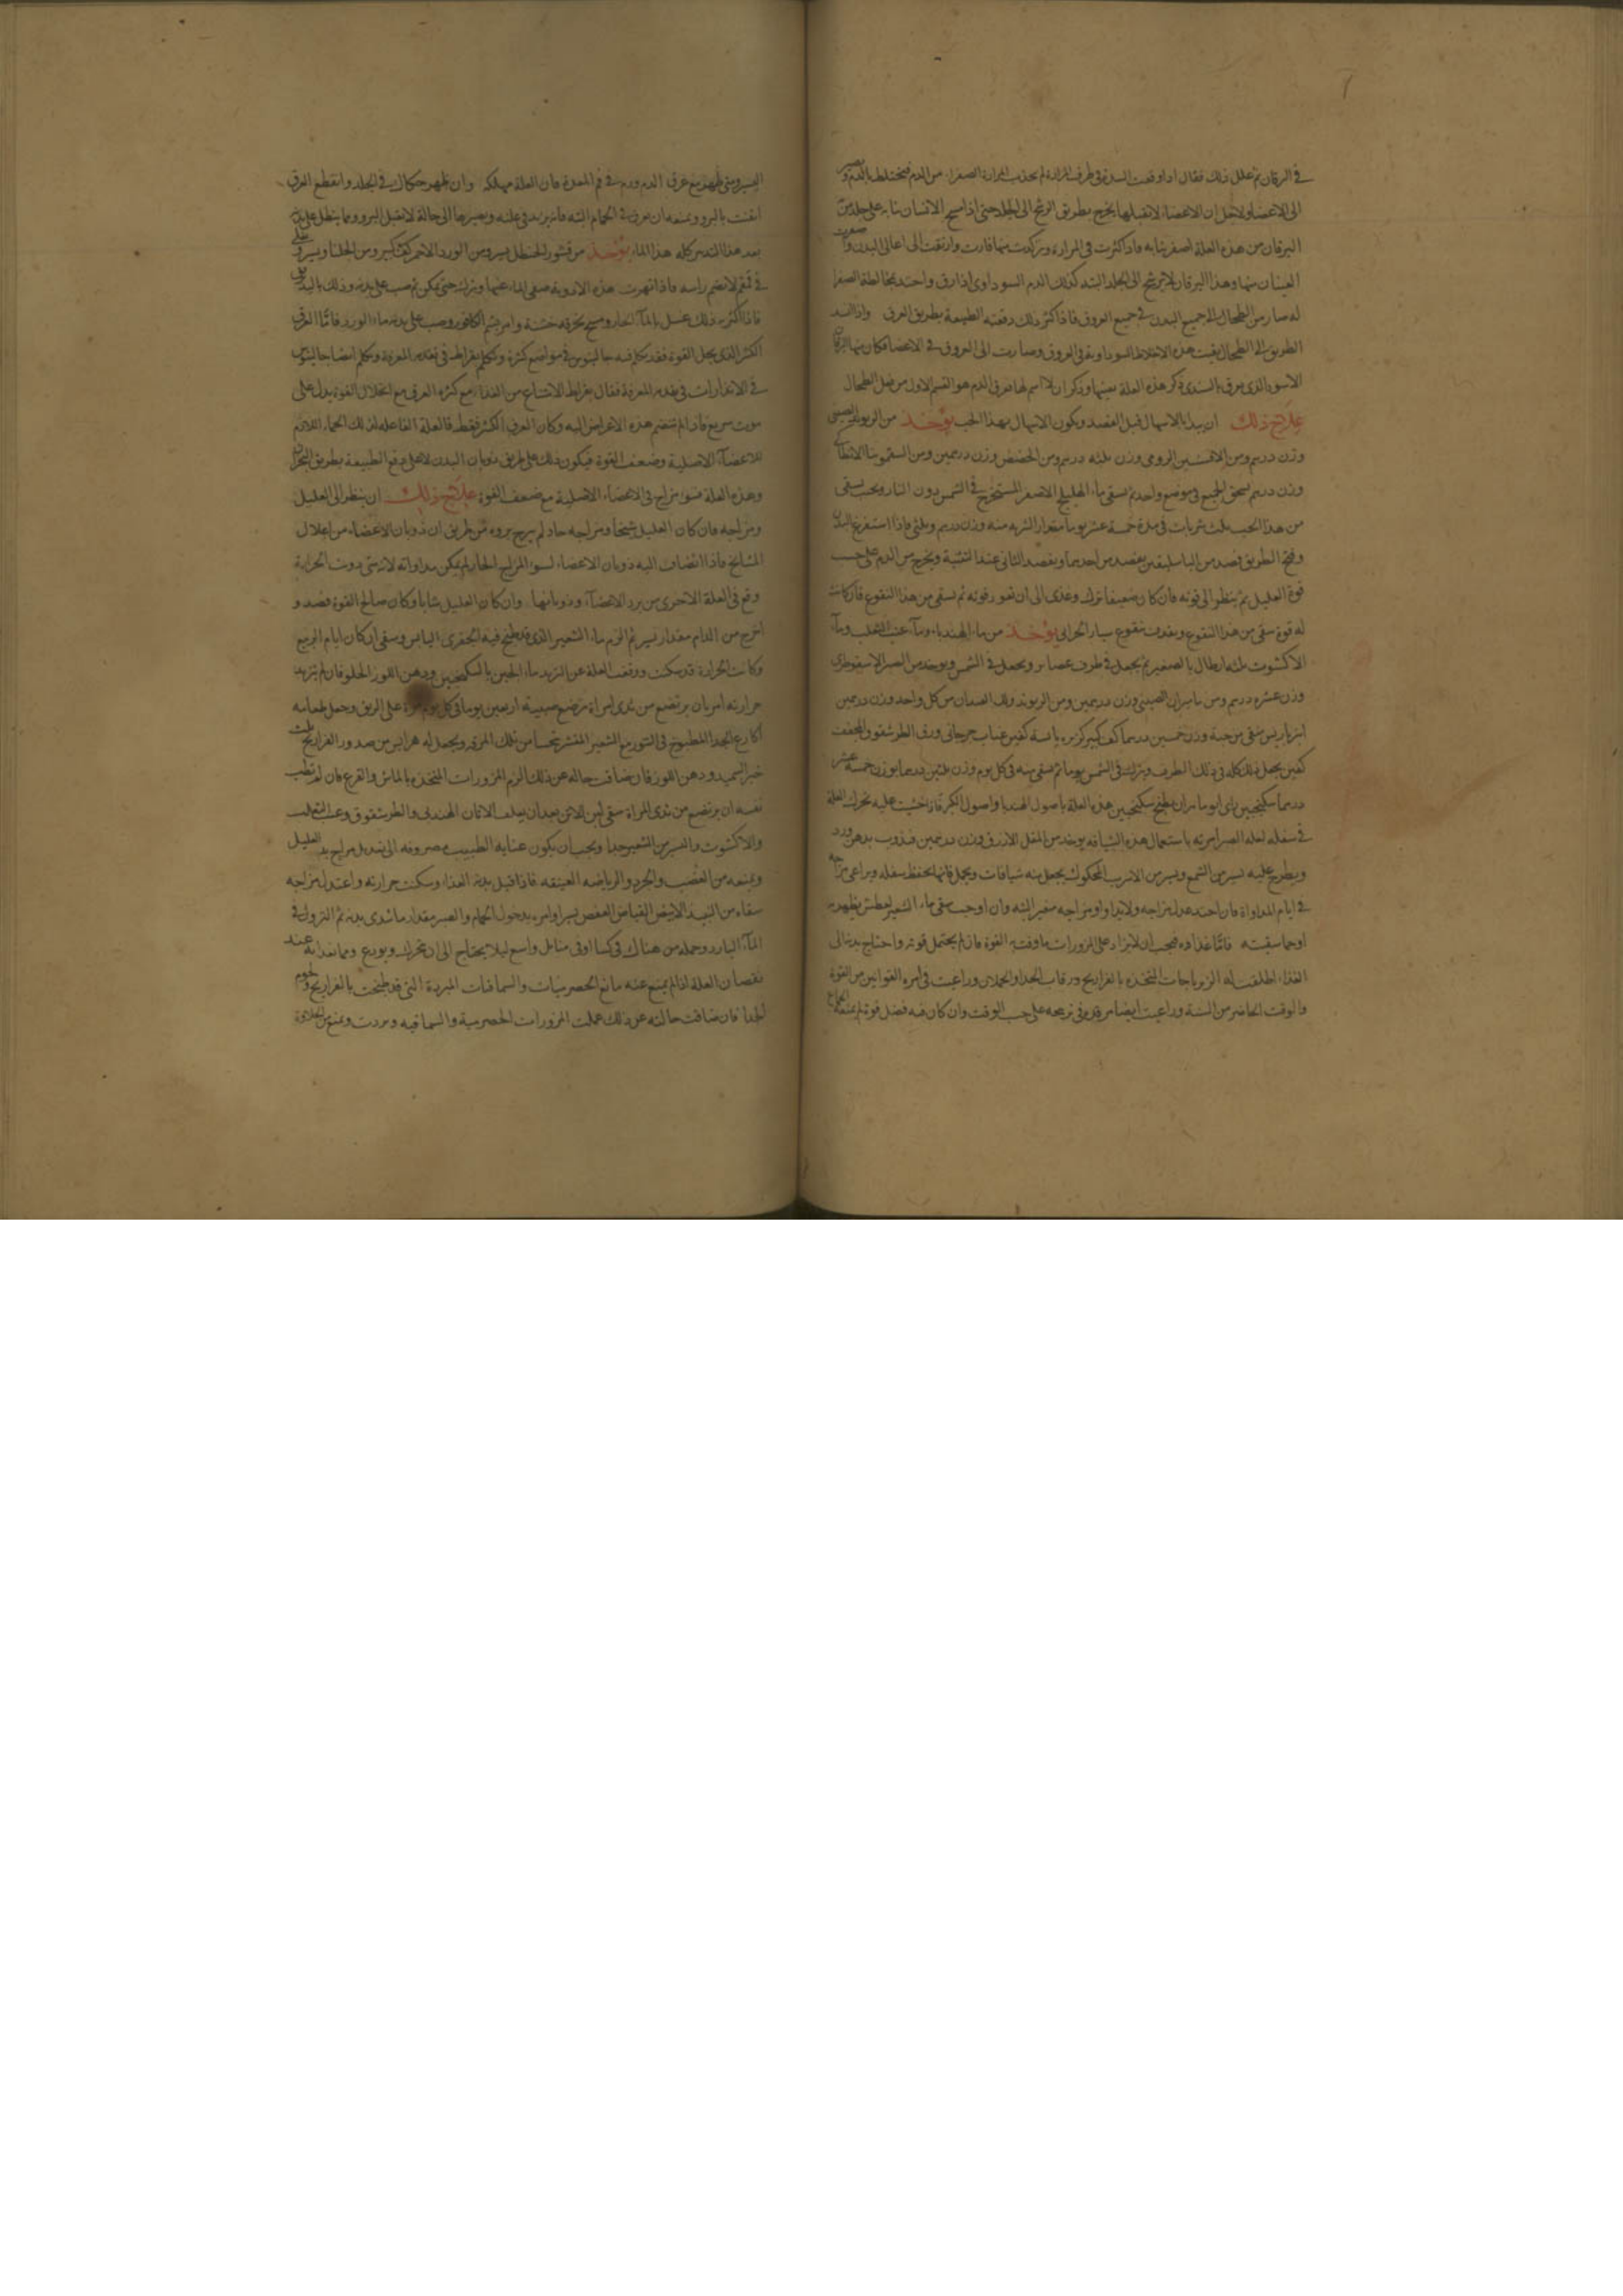 في اليرقان ثم علل ذلك فقال اذا وقعت السدة في طرف المرارة لم تجذب المرارة الصفراء من الدم فيختلط بالدم ويصير
الى الاعضا ولاجل ان الاعضاء لا تقبلها يخرج بطريق الرشح الى الجلد حتى اذا مسح الانسان ثيابه على جلده من
اليرقان من هذه العلة اصفر ثيابه فاذا كثرت في المرارة وتركدت فيها فارت وارتقت الى اعالي البدن واصفرت
العينان منها وهذا اليرقان لا يرشح الى الجلد البته كذلك الدم السوداوي اذا رق واحتد بمخالطة الصفرا
له صار من الطحال الى جميع البدن في جميع العروق فاذا كثر ذلك دفعته الطبيعة بطريق العرق واذا انسد
الطريق الى الطحال بقيت هذه الاخلاط السوداوية في العروق وصارت الى العروق في الاعضا فكان منها اليرقان
الاسود الذي يعرق بالسندي ذكر هذه العلة بعينها وذكر ان لا اسم لها عرق الدم هو القسم الاول من فعل الطحال
علاج ذلك ان يبدا بالاسهال قبل الفصد ويكون الاسهال بهذا الحب يؤخذ من الريوند الصيني
وزن درهم ومن الافسنتين الرومي وزن ثلثة درهم ومن الحضض وزن درهمين ومن السقمونيا الانطاكي
وزن درهم يسحق الجميع في موضع واحد ثم يسقى ماء الهليلج الاصفر المستخرج في الشمس دون النار ويحبب يسقى
من هذا الحب ثلث شربات في مدة خمسة عشر يوما مقدار الشربه منه وزن درهم وثلثي فاذا استفرغ البدن
وفتح الطريق فصد من الباسليقين يفصد من احدهما ويفصد الثاني عند التثنية ويخرج من الدم على حسب
قوة العليل ثم ينظر الى قوته فان كان ضعيفا ترك وغذى الى ان تعود قوته ثم يسقى من هذا النقوع فان كانت
له قوة سقى من هذا النقوع ويعرف بنقوع سيار الحراني يؤخذ من ماء الهندباء وماء عنب الثعلب وماء
الاكشوث ثلثه ارطال بالصغير ثم يجعل في ظرف غضار ويجعل في الشمس ويؤخذ من الصبر الاسقوطري
وزن عشره درهم ومن ماميران الصيني وزن درهمين ومن الريوند ولك العيدان من كل واحد وزن درهمين
انبرباريس منقى من حبه وزن خمسين درهما كف كبير كزبره يابسة كفين عناب جرجاني ورق الطرخشقوق المجفف
كفين يجعل ذلك كله في ذلك الظرف ويترك في الشمس يوما ثم يسقى منه في كل يوم وزن ثلثين درهما بوزن خمسة عشر
درهما سكنجبين
في سفله لعله الصبر امرته باستعمال هذه الشيافه يوخذ من المقل الازرق وزن درهمين فيذوب بدهن ورد
ويطرح عليه يسير من الشمع ويسير من الاسرب المحكوك يجعل منه شيافات ويحمل فانها تحفظ سفله ويراعى مزاجه
في ايام المداواة فان احتد عدل مزاجه ولا يداوا ومزاجه متغير البته وان اوجب سقى ماء الشعير لعطش يظهر به
او حما سقيته فاما غذاءه فيجب ان لا يزاد على المزورات ما وفت به القوة فان لم يحتمل قوته واحتاج بدنه الى
الغذاء اطلقت له الزيرباجات المتخذه بالفراريج ورقاب الجداء والحملان وراعيت في امره القوانين من القوة
والوقت الحاضر من السنة وراعيت ايضا مرقده في ترييحه على حسب الوقت وان كان فيه فضل قوة لم يمنعه الجماع
اليسير ومتى ظهر مع عرق الدم ورم في فم المعدة فان العلة مهلكة وان ظهر حكاك في الجلد وانقطع العرق
ايقنت بالبرو ويمنعه ان يعرق في الحمام البته فانه يزيد في علته ويصير بها الى حالة لا تقبل البرو ومما ينطل على بدنه
بعد هذا التدبير كله هذا الماء يؤخذ من قشور الحنظل يسير ومن الورد الاحمر كف كبير ومن الجلنار يسير ويغلى
في قمقم لا يضم راسه فاذا تهرت هذه الادوية صفى الماء عنها ويترك حتى يمكن ثم صب على بدنه وذلك بالبدن
فاذا اكثر ذلك غسل بالماء الحار ومسح بخرقه خشنة وامر بشم الكافور وصب على بدنه ماء الورد فاما العرق
الكثير الذي يحل القوة فقد تكلم فيه جالينوس في مواضع كثيرة وتكلم بقراط في تقدمه المعرفة وتكلم ايضا جالينوس
في الانذارات في تقدمه المعرفة فقال بقراط الامتناع من الغذاء مع كثره العرق مع انحلال القوة يدل على
موت سريع فاذا لم تنضم هذه الاعراض اليه وكان العرق الكثير فقط فالعلة الفاعله لذلك الحما اللازم
للاعضاء الاصلية وضعف القوة فيكون ذلك على طريق ذوبان البدن لا على دفع الطبيعة بطريق البحران
وهذه العلة سوء مزاج في الاعضاء الاصلية مع ضعف القوة علاج ذلك ان ينظر الى العليل
ومزاجه فان كان العليل شيخا ومزاجه حاد لم يرج بروه من طريق ان ذوبان الاعضاء من اعلال
المشايخ فاذا انضاف اليه ذوبان الاعضاء لسوا المزاج الحار لم يمكن مداواته لانه متى بردت الحرارة
وقع في العلة الاخرى من برد الاعضاء وذوبانها وان كان العليل شابا وكان صالح القوة فصد و
اخرج من الدم مقدار يسير ثم الزم ماء الشعير الذي قد طبخ فيه الجعفري اليابس وسقى ان كان ايام الربيع
وكانت الحرارة قد سكنت ووقفت العلة عن التزيد ماء الجبن بالسكنجبين ودهن اللوز الحلو فان لم تزيد
حرارته امر بان يرتضع من ثدي امراة ترضع صبية اربعين يوما في كل يوم مرة على الريق وجعل طعامه
اكارع الجدا المطبوخ في التنور مع الشعير المقشر يتحسا من تلك المرقه ويجعل له هرايس من صدور الفراريج
خبز السميد ودهن اللوز فان ضاقت حاله عن ذلك الزم المزورات المتخذه بالماش والقرع فان لم تطب
نفسه ان يرتضع من ثدي المراة سقى لبن الاتن بعد ان يعلف الاتان الهندبى والطرخشقوق وعنب الثعلب
والاكشوث واليسير من الشعير جدا ويجب ان يكون عناية الطبيب مصروفه الى تعديل مزاج بدن العليل
ويمنعه من الغضب والحرد والرياضه العنيفه فاذا قبل بدنه الغذاء وسكنت حرارته واعتدل مزاجه
سقاه من النبيذ الابيض القباض العفص يسيرا وامره بدخول الحمام والصبر مقدار ما تندى بدنه ثم النزول في
الماء البارد وحمله من هناك في كسا او في منابل واسع ليلا يحتاج الى ان يتحرك ويودع ومما يغذا به عند
نقصان العلة اذا لم يمنع عنه مانع الحصرميات والسماقيات المبردة التي قد طبخت بالفراريج ولحوم
الجدا فان ضاقت حالته عن ذلك عملت المزورات الحصرمية والسماقيه وبردت ويمنع من الحلاوة